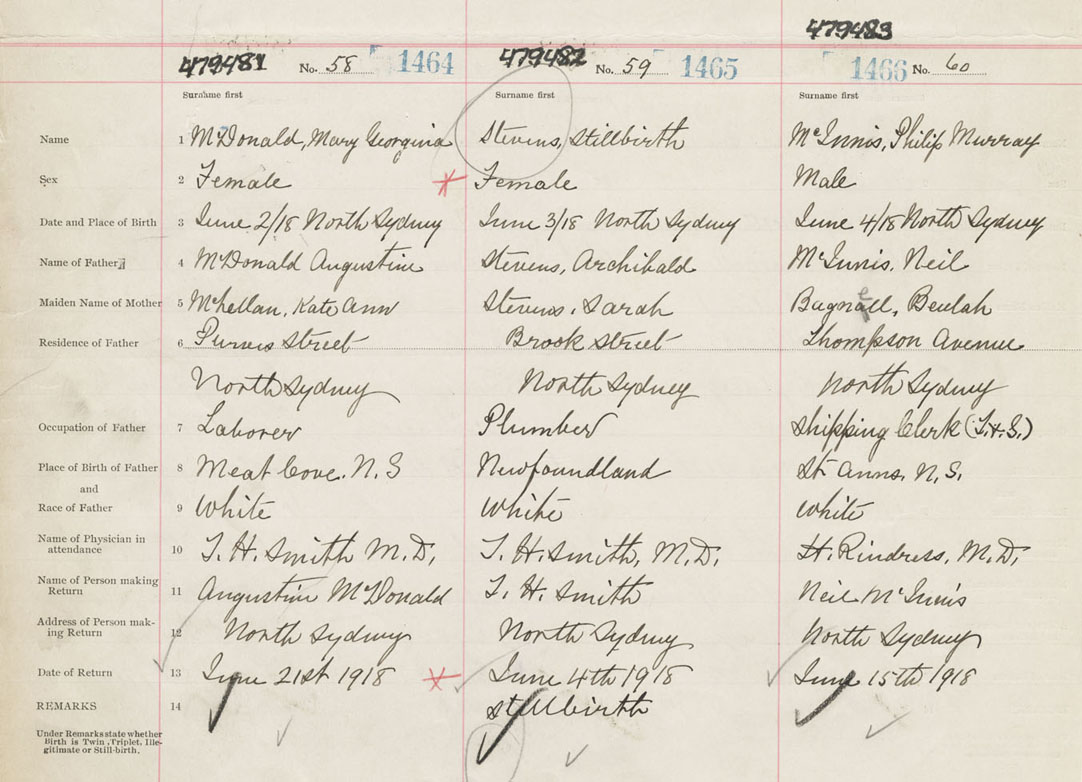 479483
479481 No. 58 1464 479482 No. 59 1465 1466 No. 60
Surname first Surname first Surname first
Name 1 McDonald, Mary Georgina Stevens, Stillbirth McInnis, Philip Murray
Sex 2 Female Female Male
Date and Place of Birth 3 June 2/18 North Sydney June 3/18 North Sydney June 4/18 North Sydney
Name of Father 4 McDonald Augustine Stevens, Archibald McInnis, Neil
Maiden Name of Mother 5 McLellan, Kate Ann Stevens, Sarah Bagnell, Beulah
Residence of Father 6 Purves Street Brook Street Thompson Avenue
North Sydney North Sydney North Sydney
Occupation of Father 7 Laborer Plumber Shipping Clerk
Place of Birth of Father 8 Meat Cove. N.S Newfoundland St Anns, N.S.
and
Race of Father 9 White White White
Name of Physician in
attendance 10 T. H. Smith M.D. T. H. Smith, M.D. H. Rindress, M.D.
Name of Person making
Return 11 Augustine McDonald T. H. Smith Neil McInnis
Address of Person mak-
ing Return 12 North Sydney North Sydney North Sydney
Date of Return 13 June 21st 1918 June 4th 1918 June 15th 1918
REMARKS 14 Stillbirth
Under Remarks state whether
Birth is Twin, Triplet, Ille-
gitimate or Still-birth.